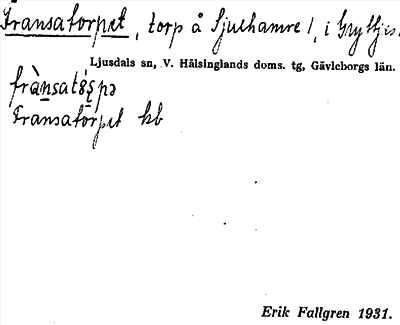 Fransatorpet, torp å Sjulhamre 1, i Gryttjes.
Ljusdals sn, V. Hälsinglands doms. tg, Gävleborgs län.
Fransatorpet hb
Erik Fallgren 1931.